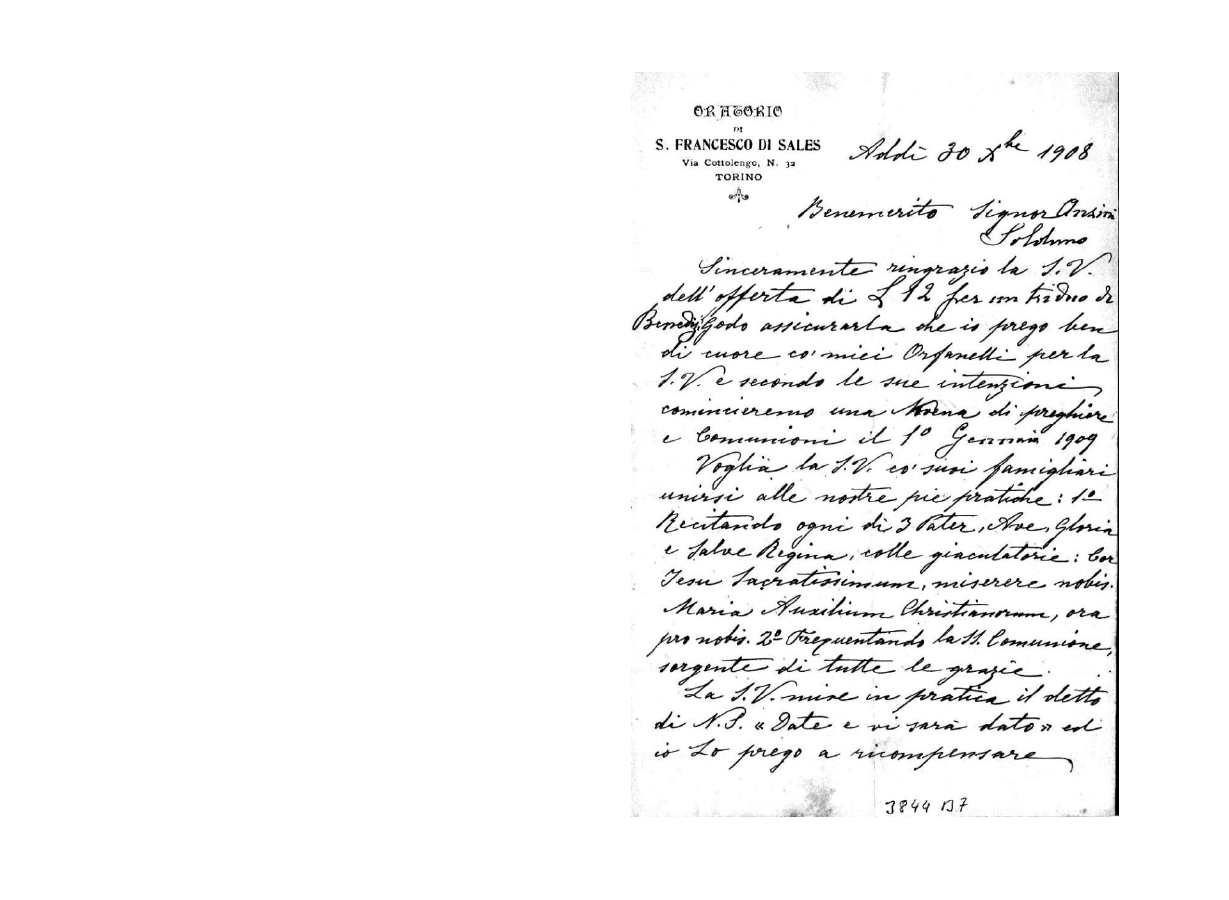 ORATORIO
DI
S. FRANCESCO DI SALES
Via Cottolengo, N. 32
TORINO
Addì 30 Xbre 1908
Benemerito Signor Anzini
Solduno
Sinceramente ringrazio la S.V.
dell'offerta di L 12 per un triduo di
Bened. Godo assicurarla che io prego ben
di cuore co' miei Orfanelli per la
S.V. e secondo le sue intenzioni
comincieremo una Novena di preghiere
e Comunioni il 1º Gennaio 1909
Voglia la S.V. co' suoi famigliari
unirsi alle nostre pie pratiche: 1º
Recitando ogni dì 3 Pater, Ave, Gloria
e Salve Regina, colle giaculatorie: Cor
Jesu Sacratissimum, miserere nobis.
Maria Auxilium Christianorum, ora
pro nobis. 2º Frequentando la SS. Comunione,
sorgente di tutte le grazie.
La S.V. mise in pratica il detto
di N.S. « Date e vi sarà dato » ed
io Lo prego a ricompensare
3844 B7